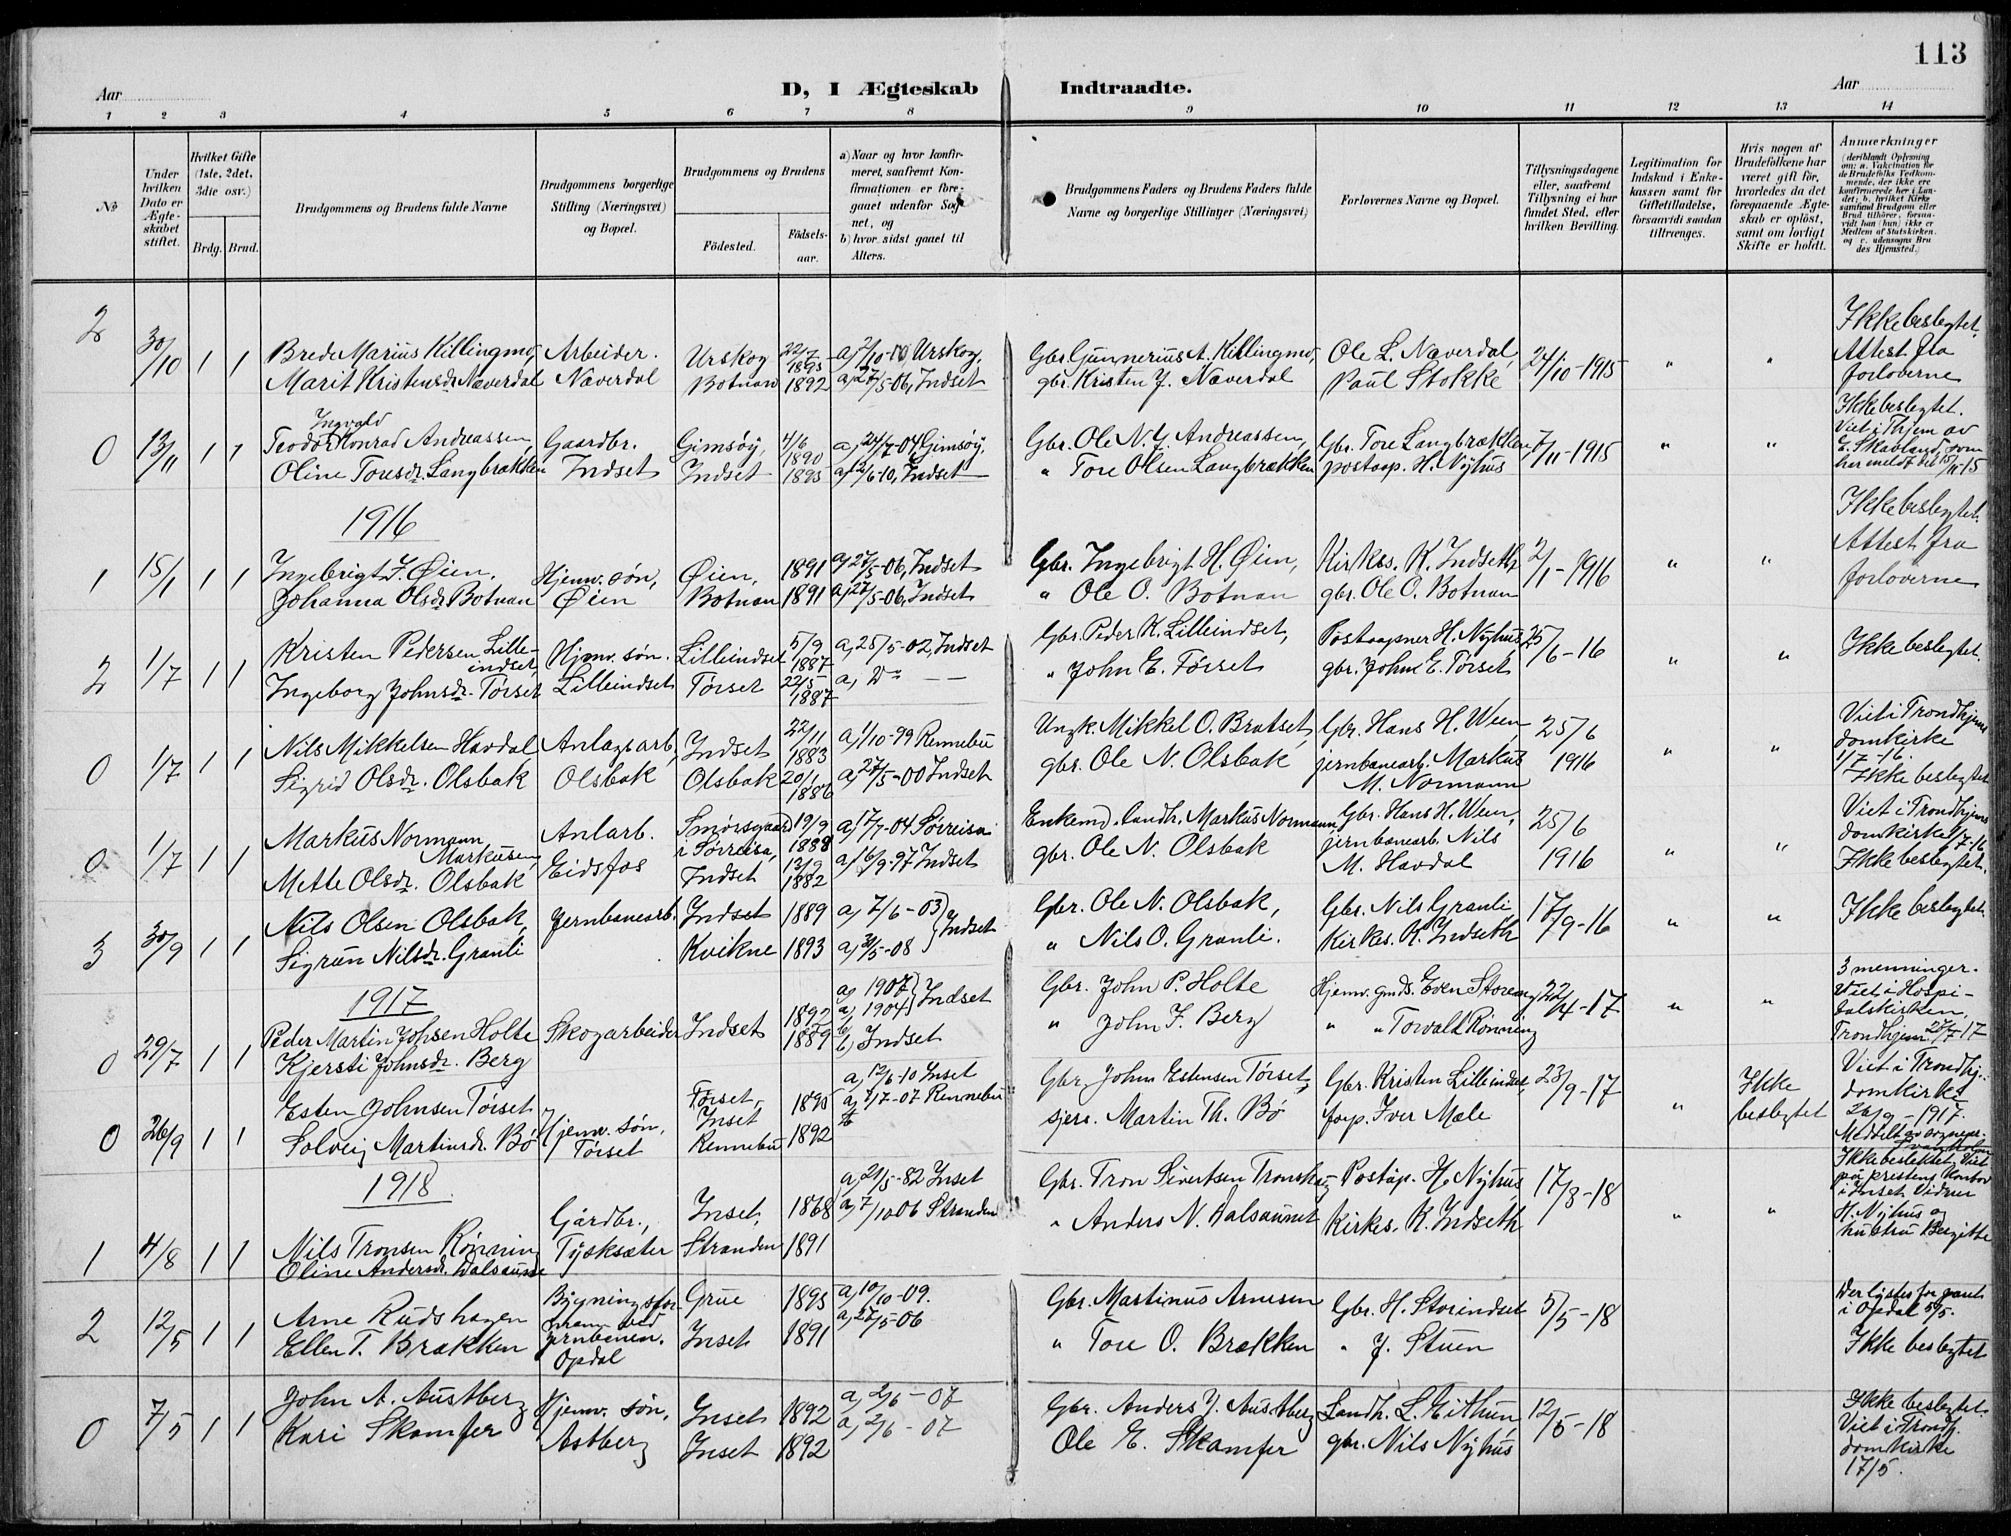 113
Aar
D, I Ægteskab Indtraadte.
Aar
1 2 3 4 5 6 7 8 9 10 11 12 13 14
No
Under hvilken Dato er Ægteskabet stiftet.
Hvilket Gifte (1ste, 2det, 3die osv.)
Brdg. Brud.
Brudgommens og Brudens fulde Navne
Brudgommens borgerlige Stilling (Næringsvei) og Bopæl.
Brudgommens og Brudens
Födested. Födselsaar.
a) Naar og hvor konfirmeret, saafremt Konfirmationen er foregaaet udenfor Sognet, og
b) hvor sidst gaaet til Alters.
Brudgommens Faders og Brudens Faders fulde Navne og borgerlige Stillinger (Næringsvei)
Forlovernes Navne og Bopæl.
Tillysningsdagene eller, saafremt Tillysning ei har fundet Sted, efter hvilken Bevilling.
Legitimation for Indskud i Enkekassen samt for Giftetilladelse, forsaavidt saadan tiltrænges.
Hvis nogen af Brudefolkene har været gift för, hvorledes da det foregaaende Ægteskab er oplöst, samt om lovligt Skifte er holdt.
Anmærkninger (deriblandt Oplysning om: a. Vakcination for de Brudefolks Vedkommende, der ikke ere konfirmerede her i Landet; b. hvilket Kirkesamfund Brudgom eller Brud tilhörer, forsaavidt han (hun) ikke er Medlem af Statskirken, og c. udensogns Brudes Hjemsted.)
2 30/10 1 1 Brede Marius Killingmo, Arbeider. Urskog 22/7 1893 a, 2/10-10 Urskog, Gbr. Gunnerius A. Killingmo, Ole L. Næverdal, 24/10-1915 " " Ikke beslegtet. Attest fra forloverne
Marit Kristensdr. Næverdal Næverdal Botnan 1892 a, 27/5-06, Indset gbr. Kristen J. Næverdal Paul Stokke
0 13/11 1 1 Teodor Ingvald Konrad Andreassen, Gaardbr. Gimsøy, 4/6 1890 a, 24/7-04 Gimsöy, Gbr. Ole N. G. Andreassen, Gbr. Tore Langbrækken 7/11-1915 " " Ikke beslegtet. Viet i Thjem av E. Skabland, som har meldt det 15/11-15
Oline Toresdr. Langbrækken Indset Indset 1893 a, 12/6-10, Indset " Tore Olsen Langbrækken postaap. H. Nyhus
1916
1 15/1 1 1 Ingebrigt I. Øien, Hjemv. søn, Øien, 1891 a, 27/5-06, Indset Gbr. Ingebrigt H. Øien, Kirkes. K. Indseth 2/1-1916 " " Ikke beslegtet. Attest fra forloverne
Johanna Olsdr. Botnan Øien Botnan 1891 a, 27/5-06, Indset " Ole O. Botnan gbr. Ole O. Botnan
2 1/7 1 1 Kristen Pedersen Lilleindset, Hjmv. søn. Lilleindset 5/9 1887 a, 25/5-02, Indset Gbr. Peder K. Lilleindset, Postaapner H. Nyhus 25/6-16 " " Ikke beslegtet.
Ingeborg Johnsdr. Tørset Lilleindset Tørset 22/5 1887 a, Do — — " John E. Tørset gbr. John E. Tørset
0 1/7 1 1 Nils Mikkelsen Havdal Anlægsarb, Indset 22/11 1883 a, 1/10-99 Rennebu Ungk. Mikkel O. Bratset, Gbr. Hans H. Ween, 25/6 1916 " " Viet i Trondhjems domkirke 1/7-16. Ikke beslegtet
Sigrid Olsdr. Olsbak Olsbak Olsbak 20/1 1886 a, 27/5-00 Indset gbr. Ole N. Olsbak jernbanearb. Markus M. Normann
0 1/7 1 1 Markus Normann Markusen, Anlarb. Smørsgaard i Sørreisa, 19/9 1888 a, 17/7-04 Sørreisa Enkemd. landh. Markus Normann, Gbr. Hans H. Ween, 25/6 1916 " " Viet i Trondhjems domkirke 1/7-16 Ikke beslegtet.
Mette Olsdr. Olsbak Eidsfos Indset 13/9 1882 a, 16/9-97 Indset gbr. Ole N. Olsbak jernbanearb. Nils M. Havdal
3 30/9 1 1 Nils Olsen Olsbak, Jernbanearb. Indset 1889 a, 7/6-03 Indset Gbr. Ole N. Olsbak, Gbr. Nils Granli 17/9-16 " " Ikke beslegtet.
Sigrun Nilsdr. Granli Kvikne 1893 a, 31/5-08 " Nils O. Granli. Kirkes. K. Indseth
1917
0 29/7 1 1 Peder Martin Johsen Holte Skogarbeider Indset 1892 a, 1907 Indset Gbr. John P. Holte Hjemv. gmds. Even Storeng 22/4-17 " " 3 menninger. Viet i Hospitalskirken, Trondhjem 29/7-17
Kjersti Johnsdr. Berg 1889 a, 1904 b, Indset " John J. Berg " " Torvald Rønning
0 26/9 1 1 Esten Johnsen Tørset Hjemv. søn, Tørset, Inset 1890 a, 12/6-10 Inset Gbr. John Estensen Tørset, Gbr. Kristen Lilleindset, 23/9-17 " Ikke beslegtet Viet i Trondhj. domkirke 26/9-1917.
Solveig Martinsdr. Bø Tørset Rennebu 1892 a, 7/7-07 Rennebu sjers. Martin Th. Bö forp. Iver Mæle
1918
1 4/8 1 1 Nils Tronsen Rönning Gårdbr., Inset, 1868 a, 21/5-82 Inset Gbr. Tron Sivertsen Tronskog Poståp. H. Nyhus, 17/3-18 " " Ikke beslektet. Viet på prestens kontor i Inset. Vidner H. Nyhus og hustru Bergitte
Oline Andersdr. Dalsaunet Tysksæter Stranden 1891 a, 7/10 06 Stranden " Anders N. Dalsaunet Kirkes. K. Indseth
2 12/5 1 1 Arne Rudshagen Bygningsformann ved jernbanen. Opdal Grue 1893 a, 10/10-09. Gbr. Martinus Arnesen Gbr. H. Storindset 5/5-18 Der lystes for paret i Opdal 5/5. Ikke beslegtet
Ellen T. Brækken Inset 1891 a, 27/5-06 " Tore O. Brækken " J. Stuen
0 7/5 1 1 John A. Austberg Hjemv. søn, Inset 1892 a, 2/6-07 Gbr. Anders J. Austberg Landh. L. Eithun, 12/5-18 Ikke beslegtet. Viet i Trondhj. domkirke 17/5.
Kari Skamfer Astberg Inset 1892 a, 2/6-07 Ole E. Skamfer gbr. Nils Nyhus